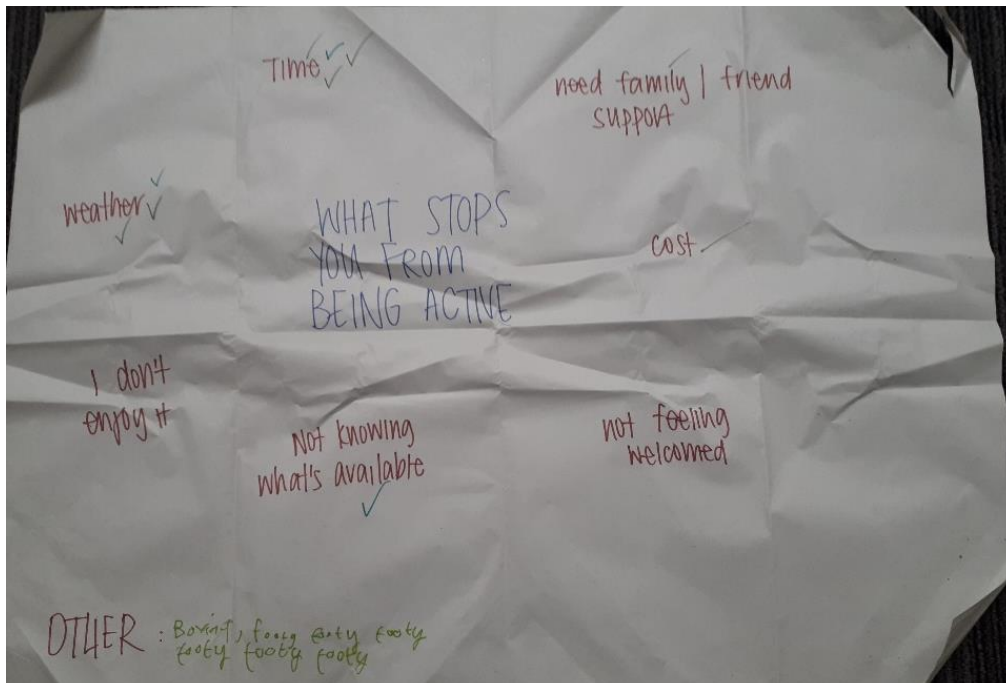 TIME
need family / friend
support
weather
WHAT STOPS
YOU FROM
BEING ACTIVE
cost
I don't
enjoy it
Not knowing
what's available
not feeling
welcomed
OTHER : footy footy
footy footy footy